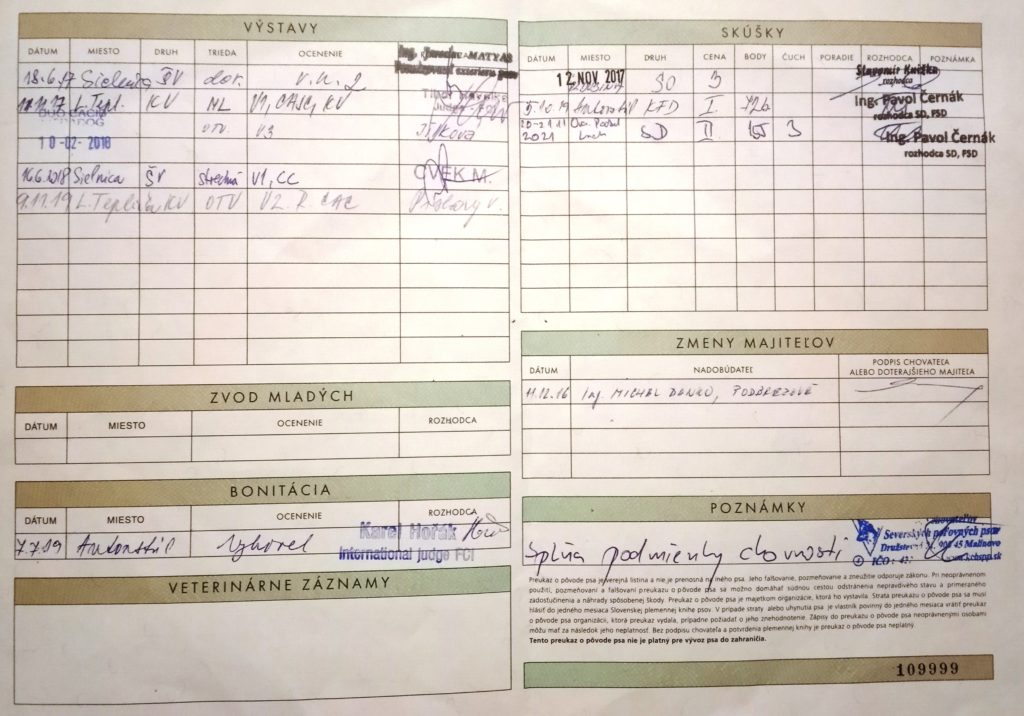 VÝSTAVY
DÁTUM MIESTO DRUH TRIEDA OCENENIE
Ing. Jaroslav MATYAS
18.6.17 Sielnica ŠV dor. v.n. 2
L. Tepl. KV ML V1, CAJC, KV
DUO CACIB
OTV V3
10-02-2018
16.6.2018 Sielnica ŠV stredná V1, CC CVEK M.
9.11.19 L. Teplička KV OTV V2. R. CAC
ZVOD MLADÝCH
DÁTUM MIESTO OCENENIE ROZHODCA
BONITÁCIA
DÁTUM MIESTO OCENENIE ROZHODCA
7.7.19 Autonstál Vyhovel Karel Hořák
International judge FCI
VETERINÁRNE ZÁZNAMY
SKÚŠKY
DÁTUM MIESTO DRUH CENA BODY ČUCH PORADIE ROZHODCA POZNÁMKA
12. NOV. 2017 SD 3
rozhodca
5.10.19 KFD I.
Ing. Pavol Černák
rozhodca SD, FSD
20-21.11 2021 SD II. 3
Ing. Pavol Černák
rozhodca SD, FSD
ZMENY MAJITEĽOV
DÁTUM NADOBÚDATEĽ PODPIS CHOVATEĽA
ALEBO DOTERAJŠIEHO MAJITEĽA
11.12.16 Ing. MICHAL DANKO, PODBREZOVÁ
POZNÁMKY
Spĺňa podmienky chovnosti
Severských poľovných psov
900 45 Malinovo
IČO: 42
www.kchspp.sk
Preukaz o pôvode psa je verejná listina a nie je prenosná na iného psa. Jeho falšovanie, pozmeňovanie a zneužitie odporuje zákonu. Pri neoprávnenom
použití, pozmeňovaní a falšovaní preukazu o pôvode psa sa možno domáhať súdnou cestou odstránenia nepravdivého stavu a primeraného
zadosťučinenia a náhrady spôsobenej škody. Preukaz o pôvode psa je majetkom organizácie, ktorá ho vystavila. Strata preukazu o pôvode psa sa musí
hlásiť do jedného mesiaca Slovenskej plemennej knihe psov. V prípade straty alebo uhynutia psa je vlastník povinný do jedného mesiaca vrátiť preukaz
o pôvode psa organizácii, ktorá preukaz vydala, prípadne požiadať o jeho znehodnotenie. Zápisy do preukazu o pôvode psa neoprávnenými osobami
môžu mať za následok jeho neplatnosť. Bez podpisu chovateľa a potvrdenia plemennej knihy je preukaz o pôvode psa neplatný.
Tento preukaz o pôvode psa nie je platný pre vývoz psa do zahraničia.
109999